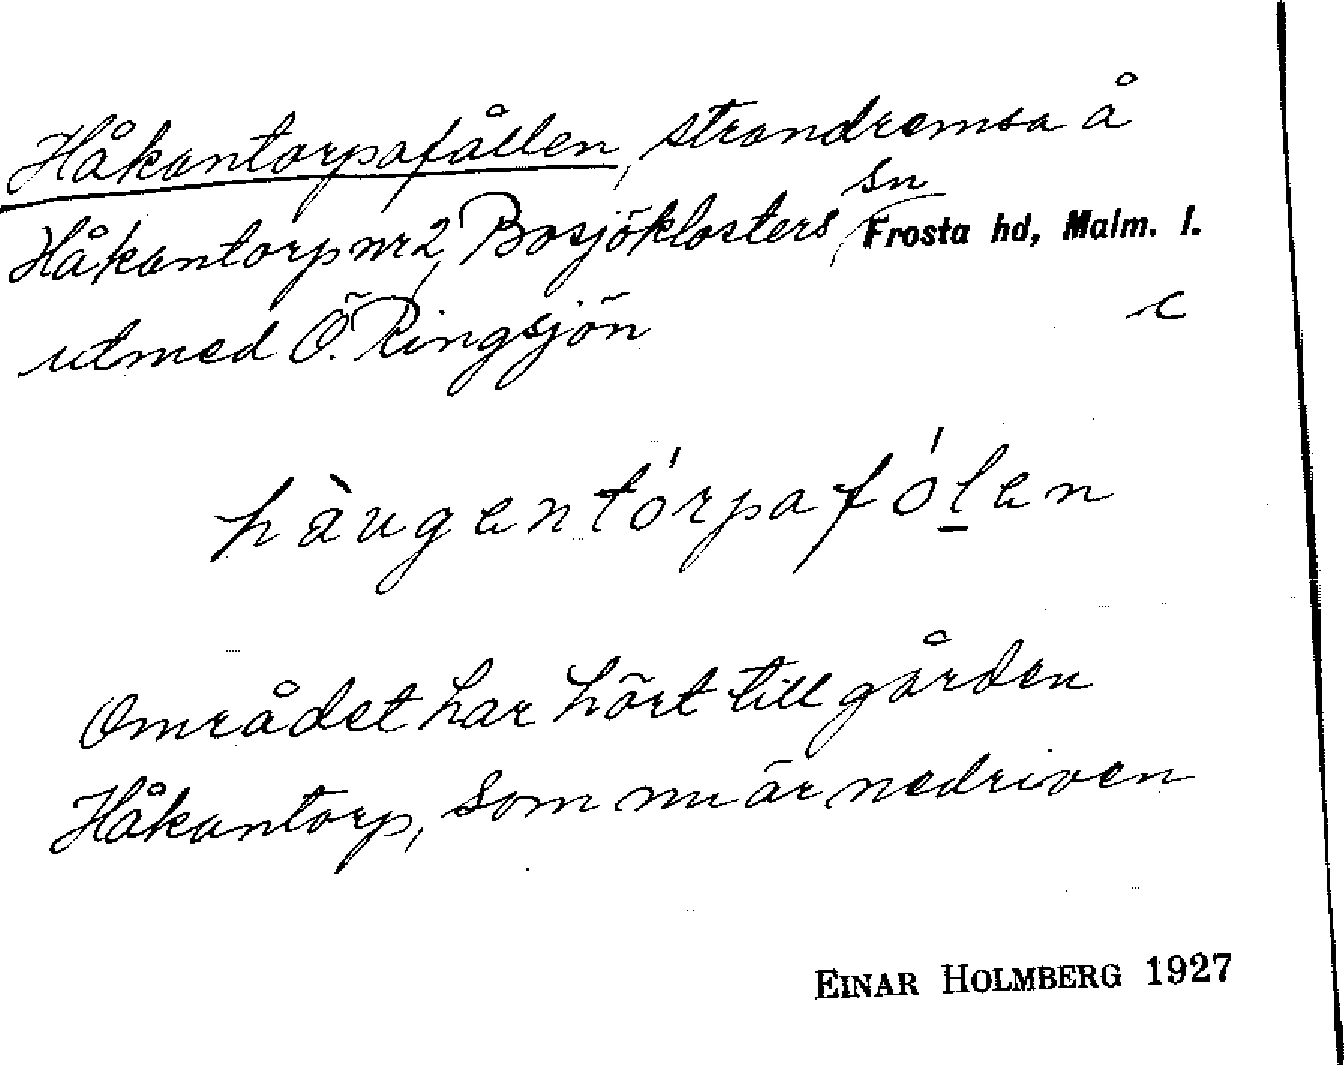 Håkantorpafållen, strandremsa å
Håkantorp nr 2, Bosjöklosters sn, Frosta hd, Malm. l.
utmed Ö. Ringsjön
c
hàugentórpafólen
Området har hört till gården
Håkantorp, som nu är nedriven
EINAR HOLMBERG 1927